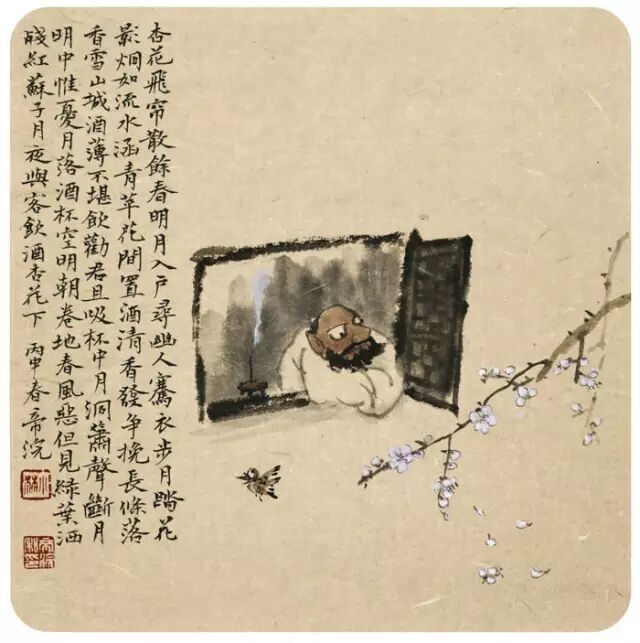 杏花飛帘散餘春明月入戶尋幽人騫衣步月踏花
影炯如流水涵青苹花間置酒清香發爭挽長條落
香雪山城酒薄不堪飲勸君且吸杯中月洞蕭聲斷月
明中惟憂月落酒杯空明朝卷地春風惡但見綠葉洒
殘紅蘇子月夜與客飲酒杏花下 丙申春帝浣